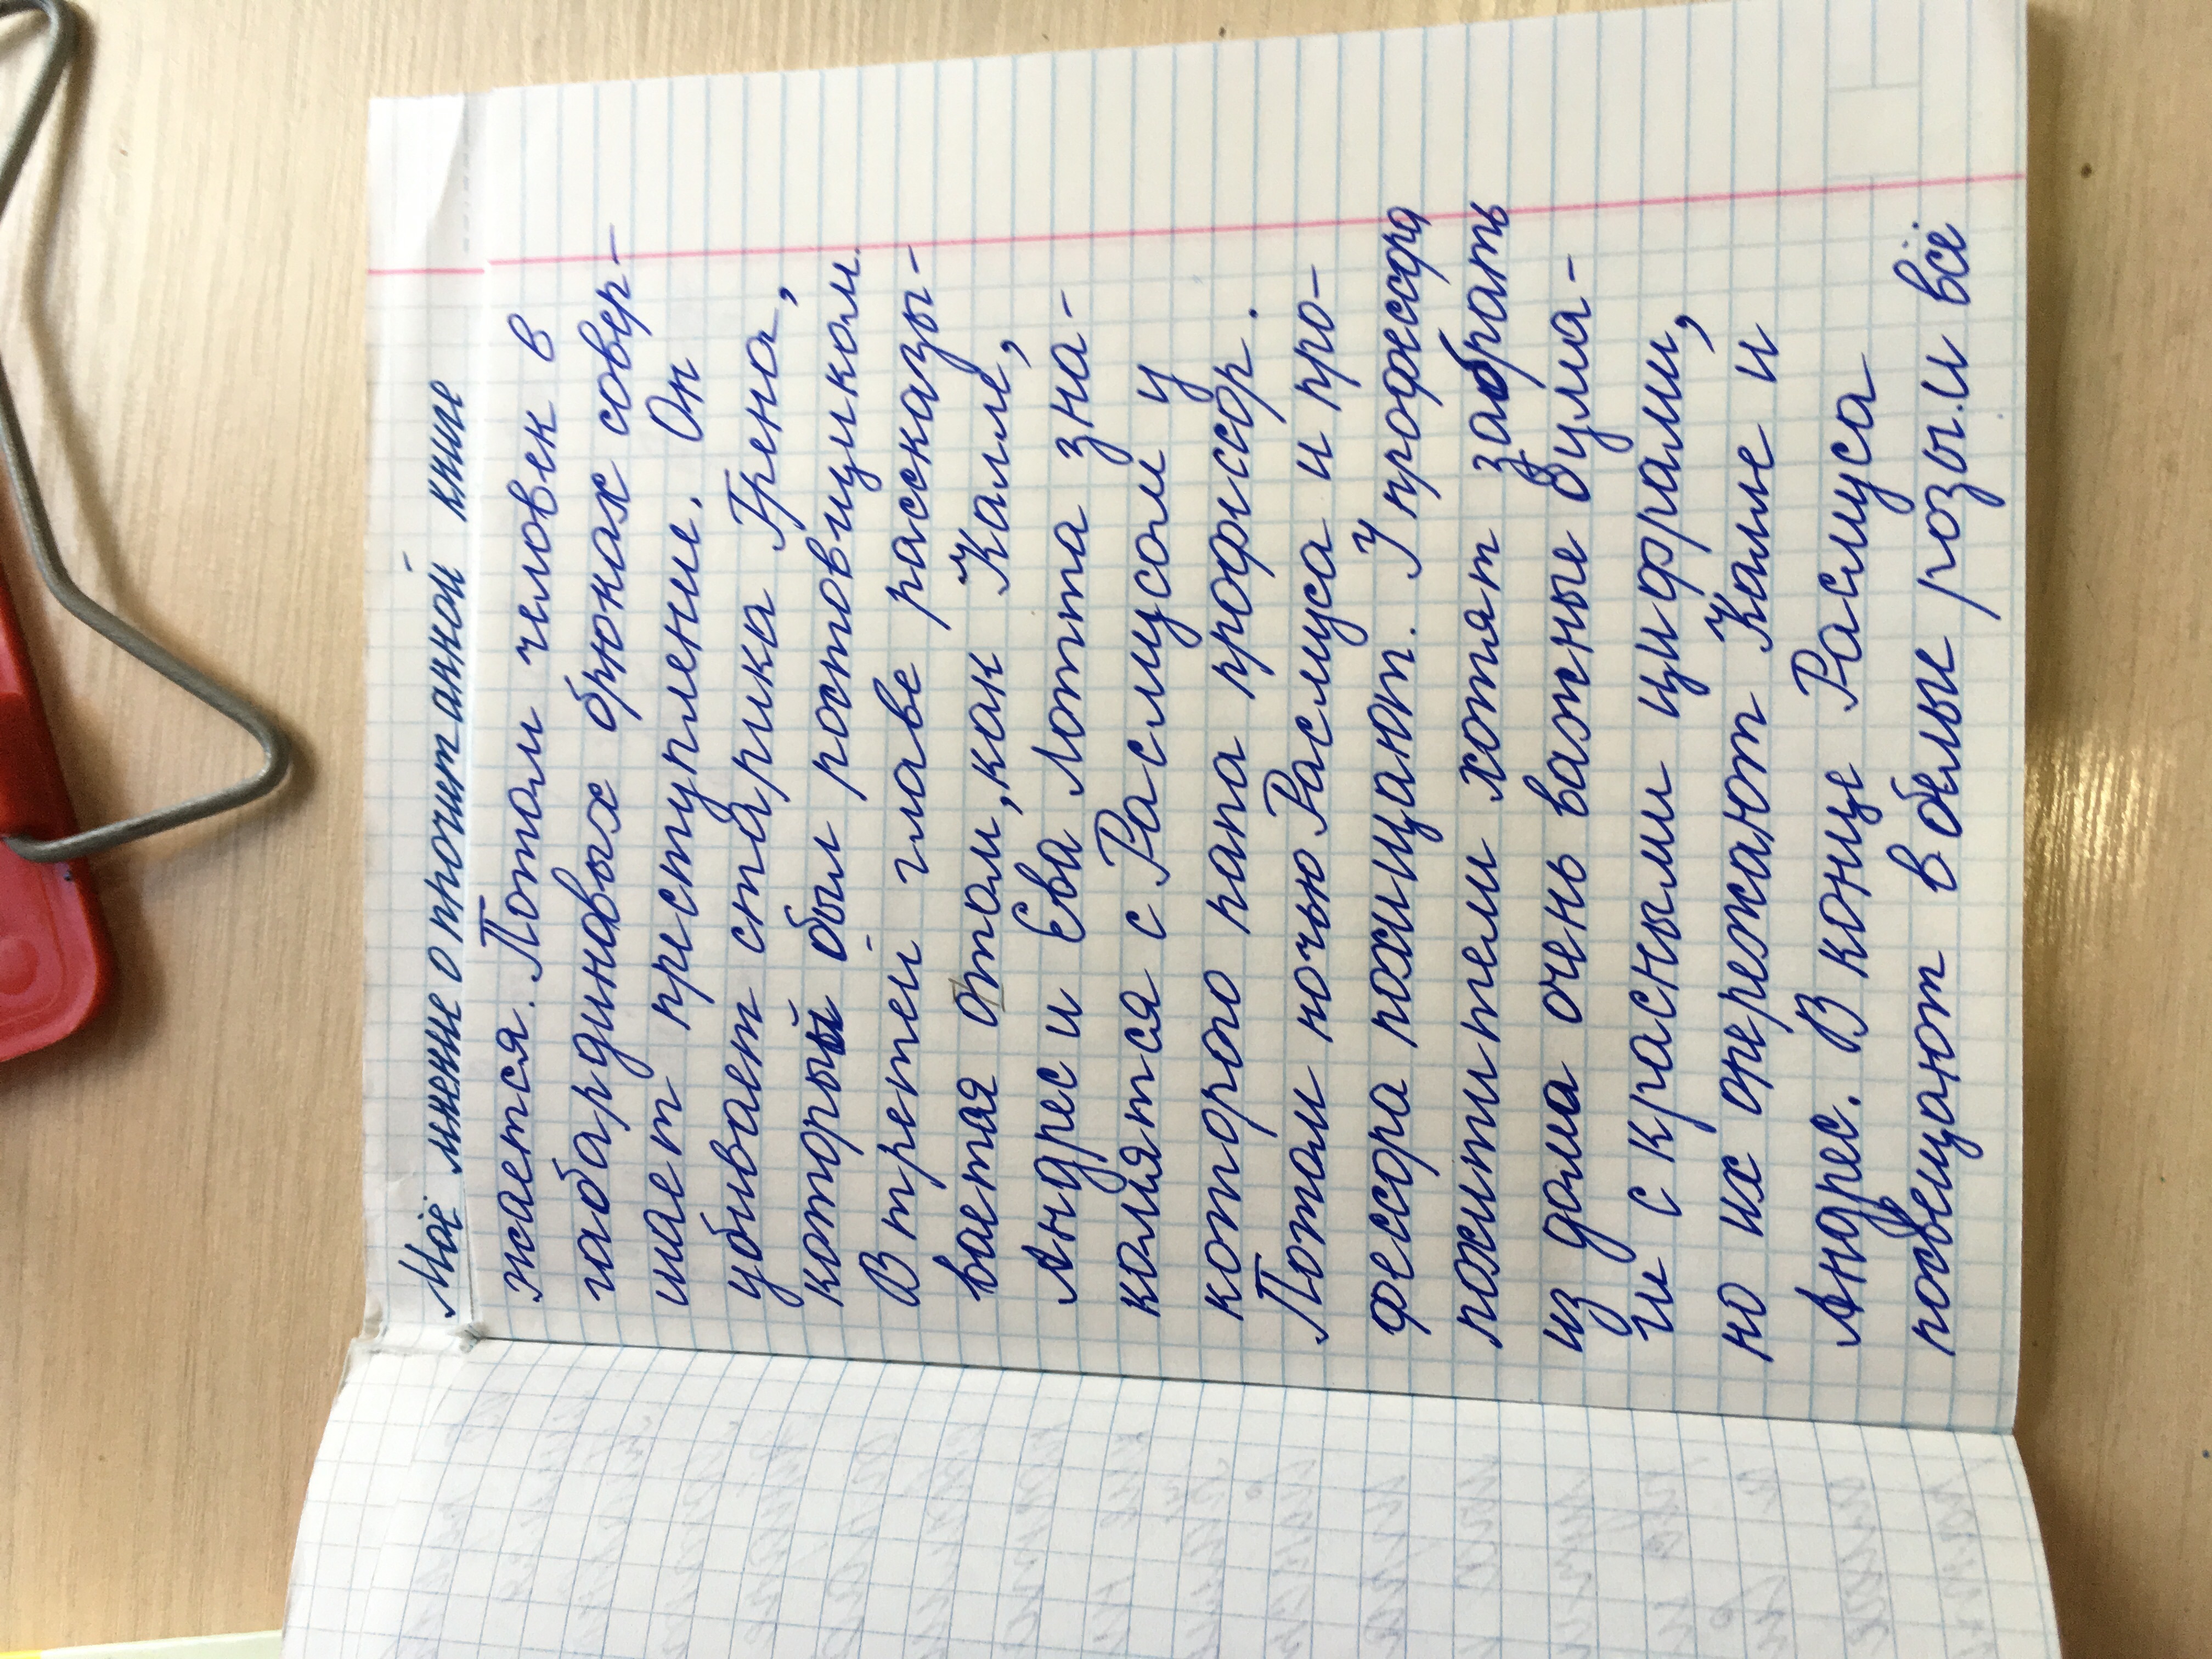 Моё мнение о прочитанной книге
жается. Потом человек в
габардиновых брюках совер-
шает преступление. Он
убивает старика Грена,
который был ростовщиком.
В третей главе рассказы-
вается отом, как Калле,
Андрес и Ева Лотта зна-
комятся с Расмусом у
которого папа профессор.
Потом ночью Расмуса и про-
фессора похищают. У профессора
похитители хотят забрать
из дома очень важные бума-
ги с красными цифрами,
но их опережают Калле и
Андрес. В конце Расмуса
посвещают в белые розы.и всё